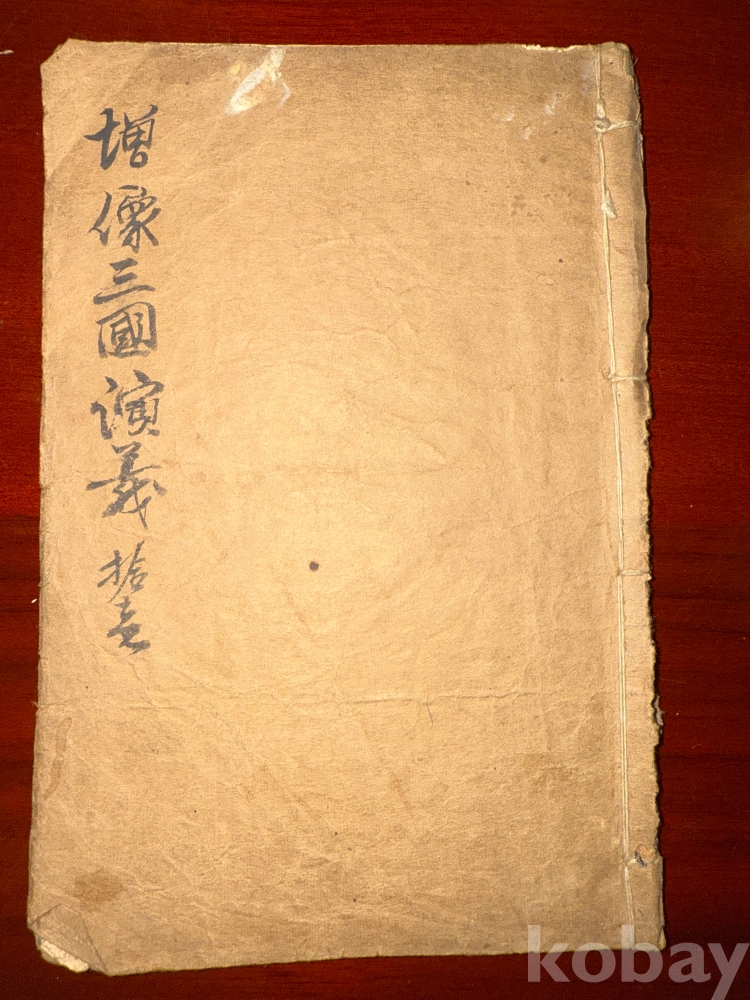 增像三國演義 拾壹
kobay